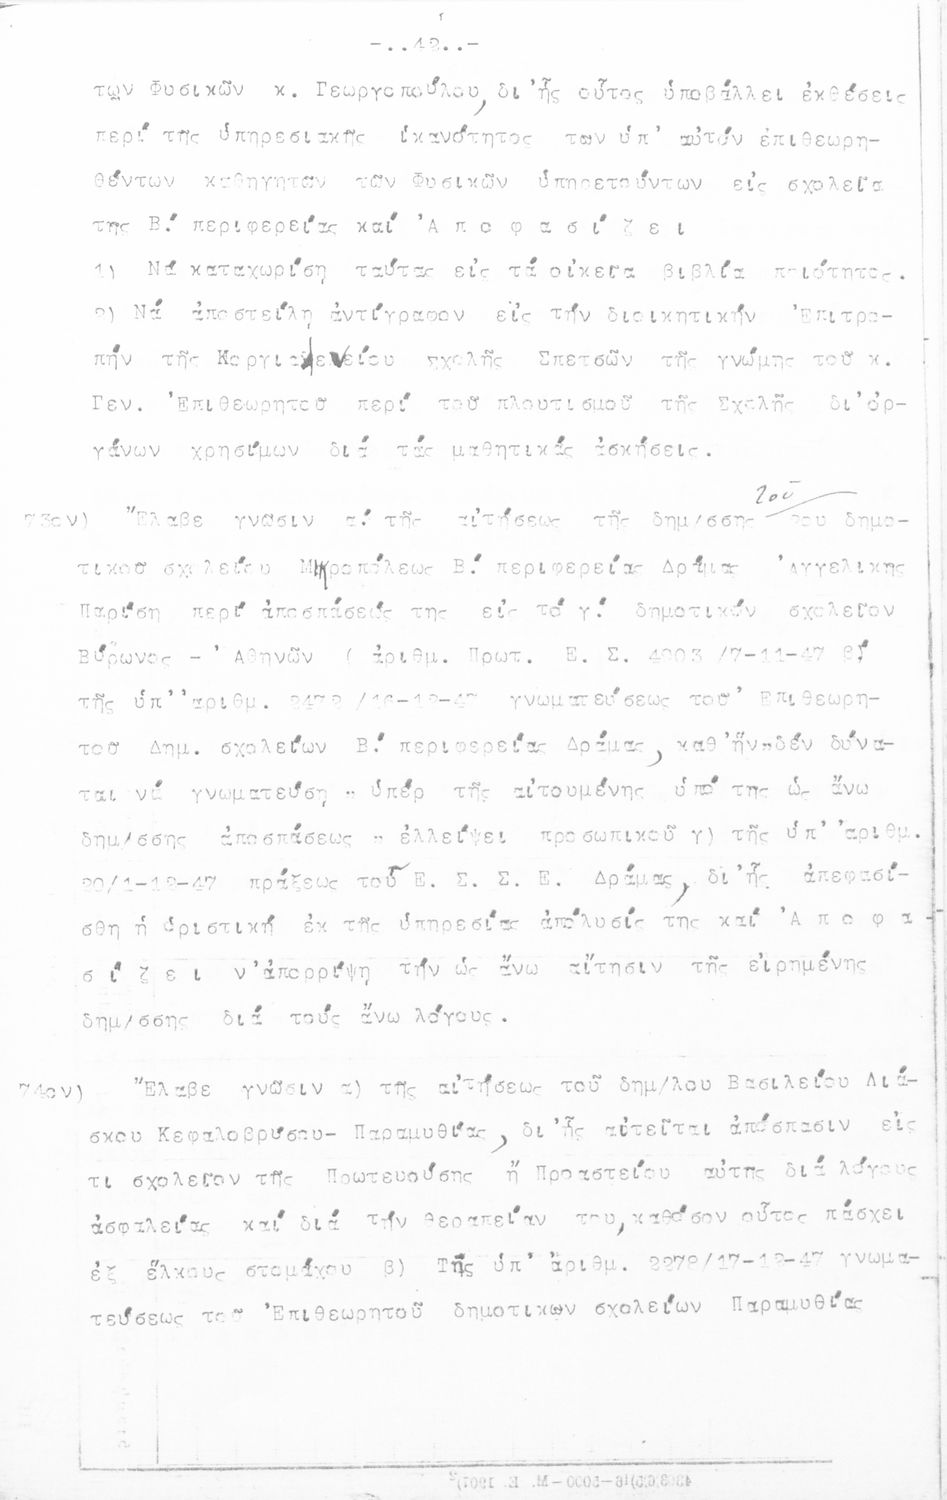 -..42..-
των Φυσικῶν κ. Γεωργοπούλου, δι'ἧς οὗτος ὑποβάλλει ἐκθέσεις
περί τῆς ὑπηρεσιακῆς ἱκανότητος των ὑπ' αὐτόν ἐπιθεωρη-
θέντων καθηγητῶν τῶν Φυσικῶν ὑπηρετούντων εἰς σχολεῖα
της Β.' περιφερείας καί 'Α π ο φ α σ ί ζ ε ι
1) Νά καταχωρίση ταύτας εἰς τά οἰκεῖα βιβλία ποιότητος.
2) Νά ἀποστείλη ἀντίγραφον εἰς τήν διοικητικήν 'Επιτρο-
πήν τῆς Κοργιαλενείου σχολῆς Σπετσῶν τῆς γνώμης τοῦ κ.
Γεν. 'Επιθεωρητοῦ περί τοῦ πλουτισμοῦ τῆς Σχολῆς δι'ὀρ-
γάνων χρησίμων διά τάς μαθητικάς ἀσκήσεις.
τοῦ
73ον) Ἔλαβε γνῶσιν α.' τῆς αἰτήσεως τῆς δημ/σσης 2ου δημο-
τικοῦ σχολείου Μικροπόλεως Β.' περιφερείας Δράμας 'Αγγελικης
Παρίση περί ἀποσπάσεώς της εἰς τό γ.' δημοτικόν σχολεῖον
Βύρωνος - 'Αθηνῶν ( ἀριθμ. Πρωτ. Ε. Σ. 4203 /7-11-47 β)
τῆς ὑπ' 'αριθμ. 2472 /16-12-47 γνωματεύσεως τοῦ 'Επιθεωρη-
τοῦ Δημ. σχολείων Β.' περιφερείας Δράμας, καθ'ἥν "δέν δύνα-
ται νά γνωματεύση " ὑπέρ τῆς αἰτουμένης ὑπό της ὡς ἄνω
δημ/σσης ἀποσπάσεως " ἐλλείψει προσωπικοῦ γ) τῆς ὑπ' 'αριθμ.
20/1-12-47 πράξεως τοῦ Ε. Σ. Σ. Ε. Δράμας, δι'ἧς ἀπεφασί-
σθη ἡ ὁριστική ἐκ τῆς ὑπηρεσίας ἀπόλυσίς της καί 'Α π ο φ α -
σ ί ζ ε ι ν'ἀπορρίψη τήν ὡς ἄνω αἴτησιν τῆς εἰρημένης
δημ/σσης διά τούς ἄνω λόγους.
74ον) Ἔλαβε γνῶσιν α) τῆς αἰτήσεως τοῦ δημ/λου Βασιλείου Λιά-
σκου Κεφαλοβρύσου- Παραμυθίας, δι'ἧς αἰτεῖται ἀπόσπασιν εἰς
τι σχολεῖον τῆς Πρωτευούσης ἤ Προαστείου αὐτης διά λόγους
ἀσφαλείας καί διά τήν θεραπείαν του, καθόσον οὗτος πάσχει
ἐξ ἕλκους στομάχου β) Τῆς ὑπ' ἀριθμ. 2278/17-12-47 γνωμα-
τεύσεως τοῦ 'Επιθεωρητοῦ δημοτικων σχολείων Παραμυθίας